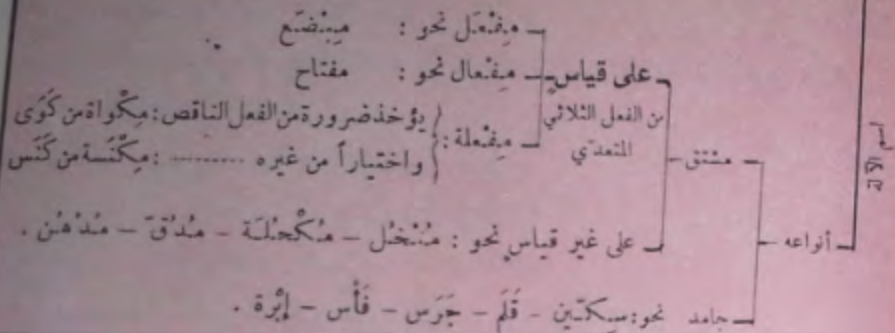 اسم الآلة
أنواعه
مشتق
على قياس
من الفعل الثلاثي
المتعدّي
مِفْعَل نحو : مِبْضَع
مِفْعال نحو : مفتاح
مِفْعلة :
يؤخذ ضرورة من الفعل الناقص : مِكْواة من كَوَى
واختياراً من غيره ......... : مِكْنَسة من كَنَس
على غير قياس نحو : مُنْخُل – مُكْحُلَة – مُدُقّ – مُدْهُن .
جامد نحو : سِكّين – قَلَم – جَرَس – فَأْس – إبْرة .